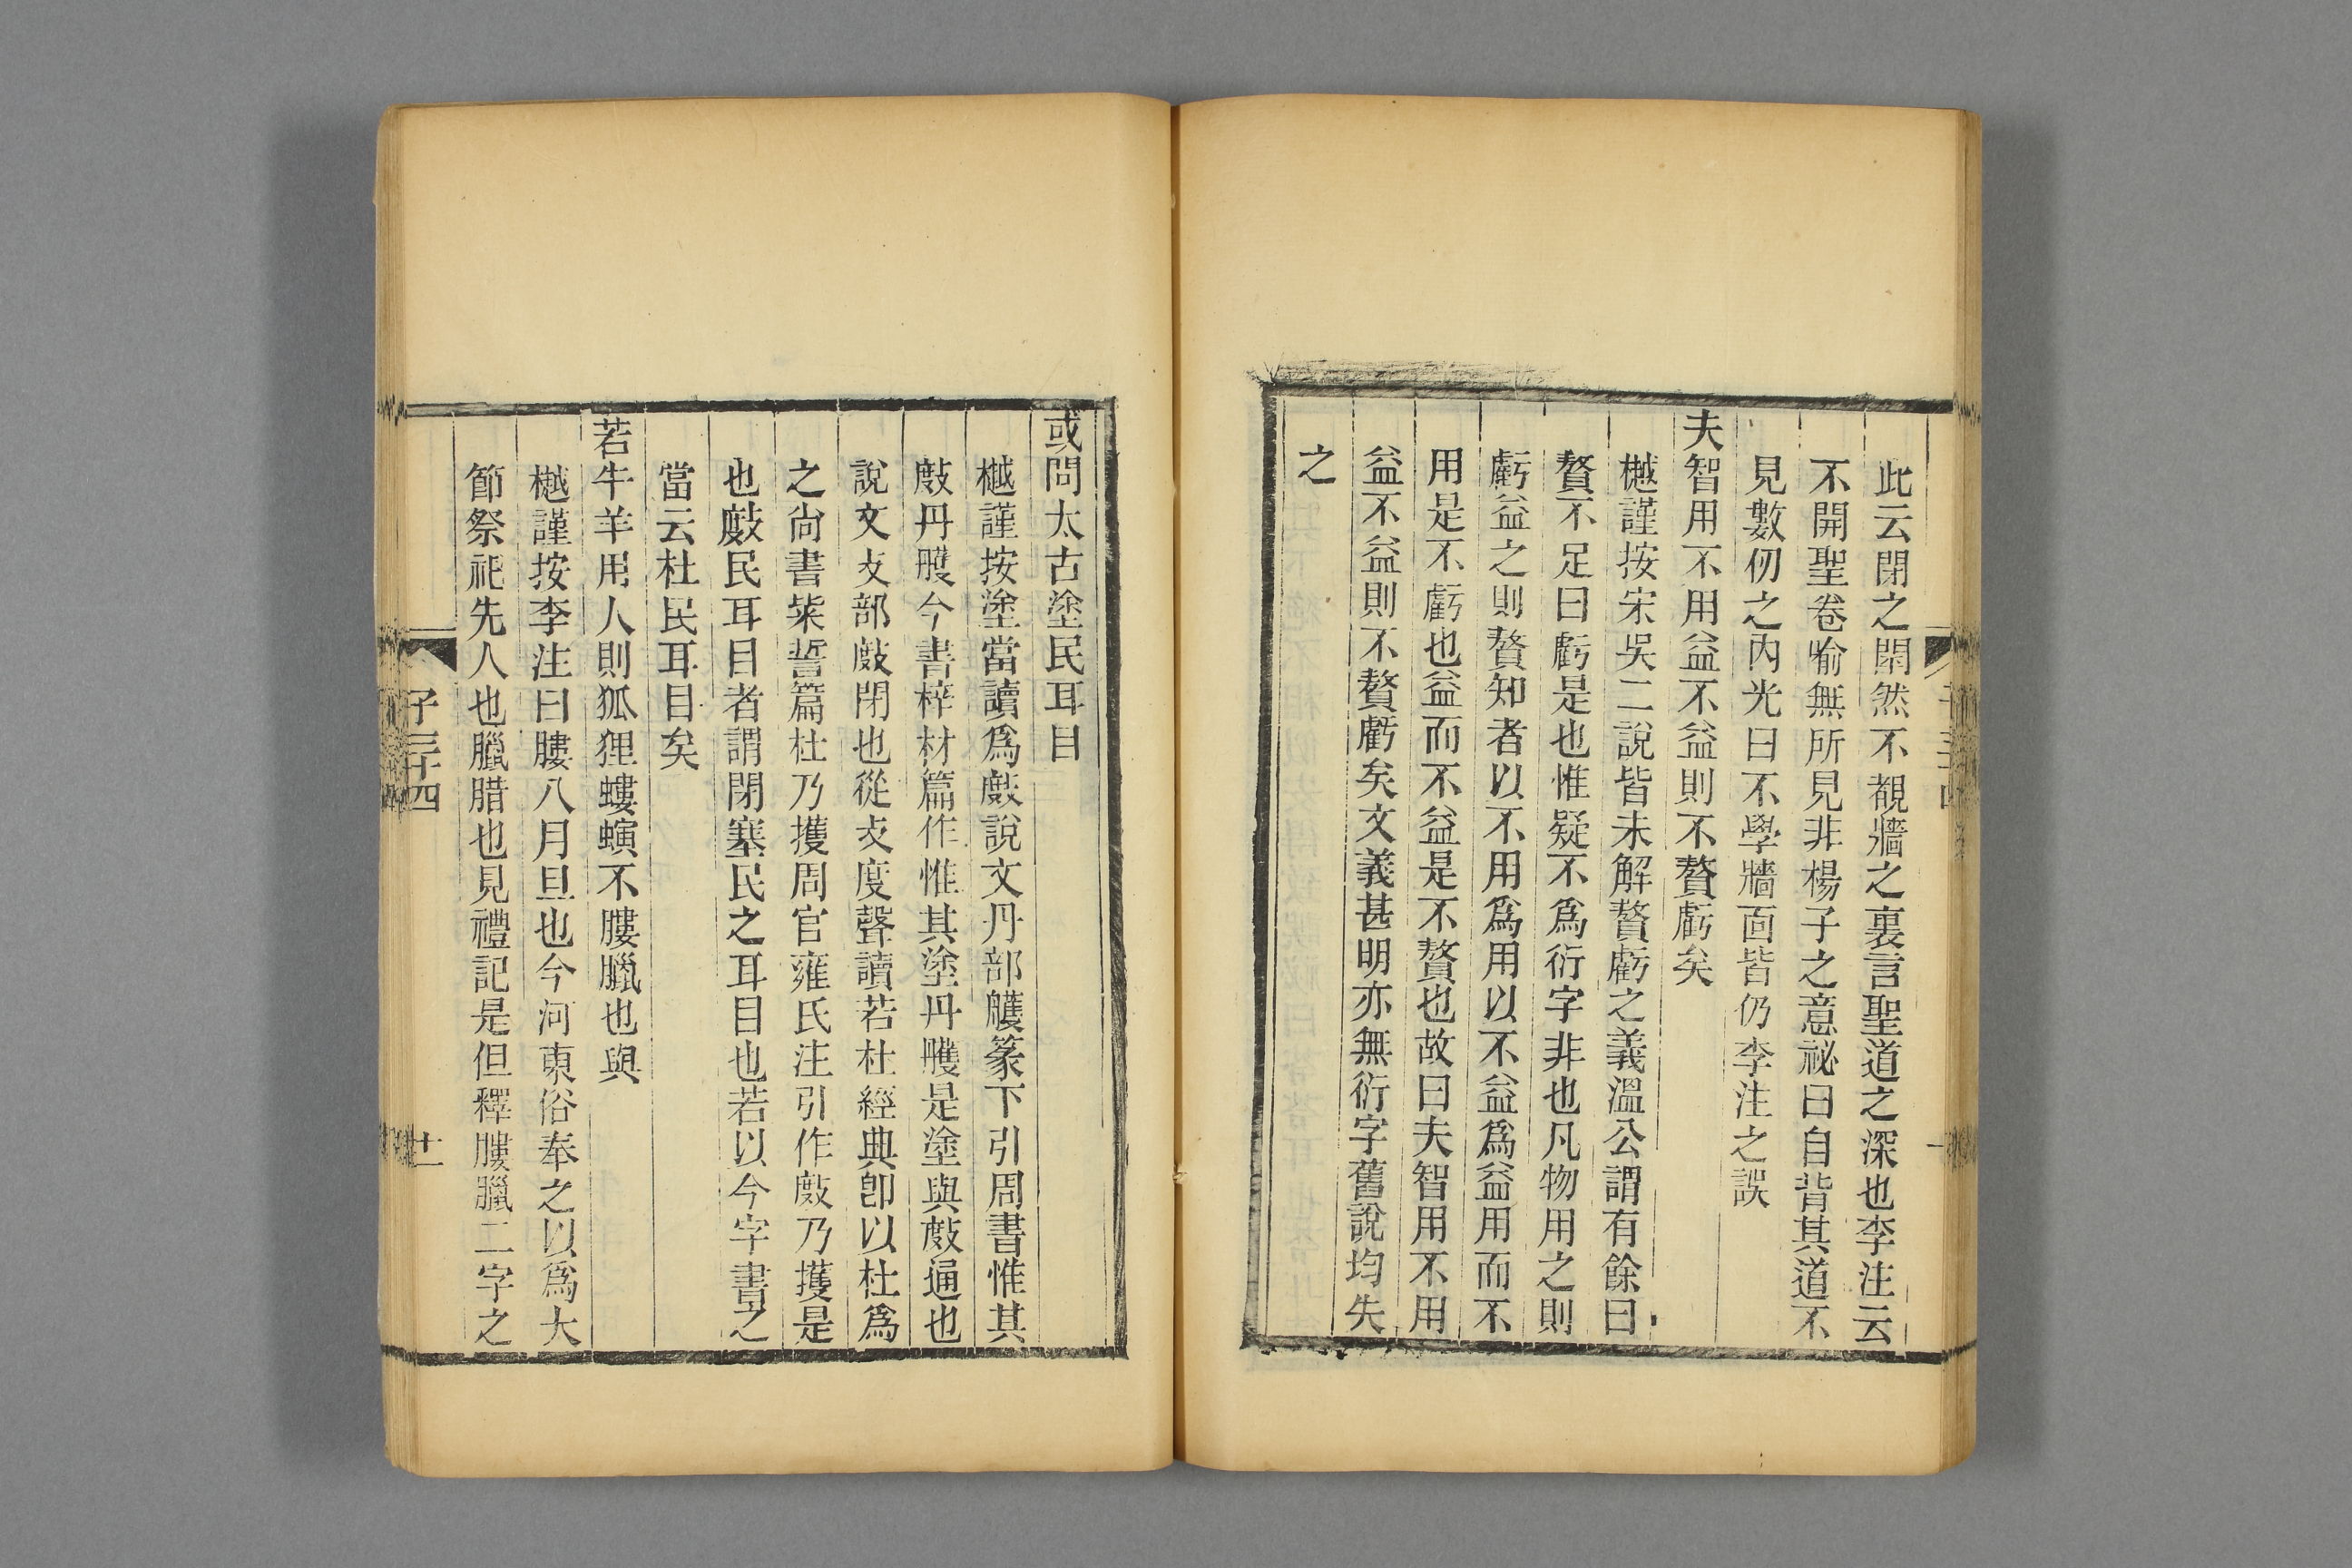 此云閉之閉然不覩牆之裏言聖道之深也李注云
不開聖卷喻無所見非楊子之意祕曰自背其道不
見數仞之內光曰不學牆面皆仍李注之誤
夫智用不用益不益則不贅虧矣
樾謹按宋吳二說皆未解贅虧之義溫公謂有餘曰
贅不足曰虧是也惟疑不爲衍字非也凡物用之則
虧益之則贅知者以不用爲用以不益爲益用而不
用是不虧也益而不益是不贅也故曰夫智用不用
益不益則不贅虧矣文義甚明亦無衍字舊說均失
之
或問太古塗民耳目
樾謹按塗當讀爲㪴說文丹部雘篆下引周書惟其
㪴丹雘今書梓材篇作惟其塗丹雘是塗與㪴通也
說文攴部㪴閉也從攴度聲讀若杜經典卽以杜爲
之尙書柴誓篇杜乃擭周官雍氏注引作㪴乃擭是
也㪴民耳目者謂閉塞民之耳目也若以今字書之
當云杜民耳目矣
若牛羊用人則狐狸螻螾不膢臘也與
樾謹按李注曰膢八月旦也今河東俗奉之以爲大
節祭祀先人也臘腊也見禮記是但釋膢臘二字之
子三十四
十一